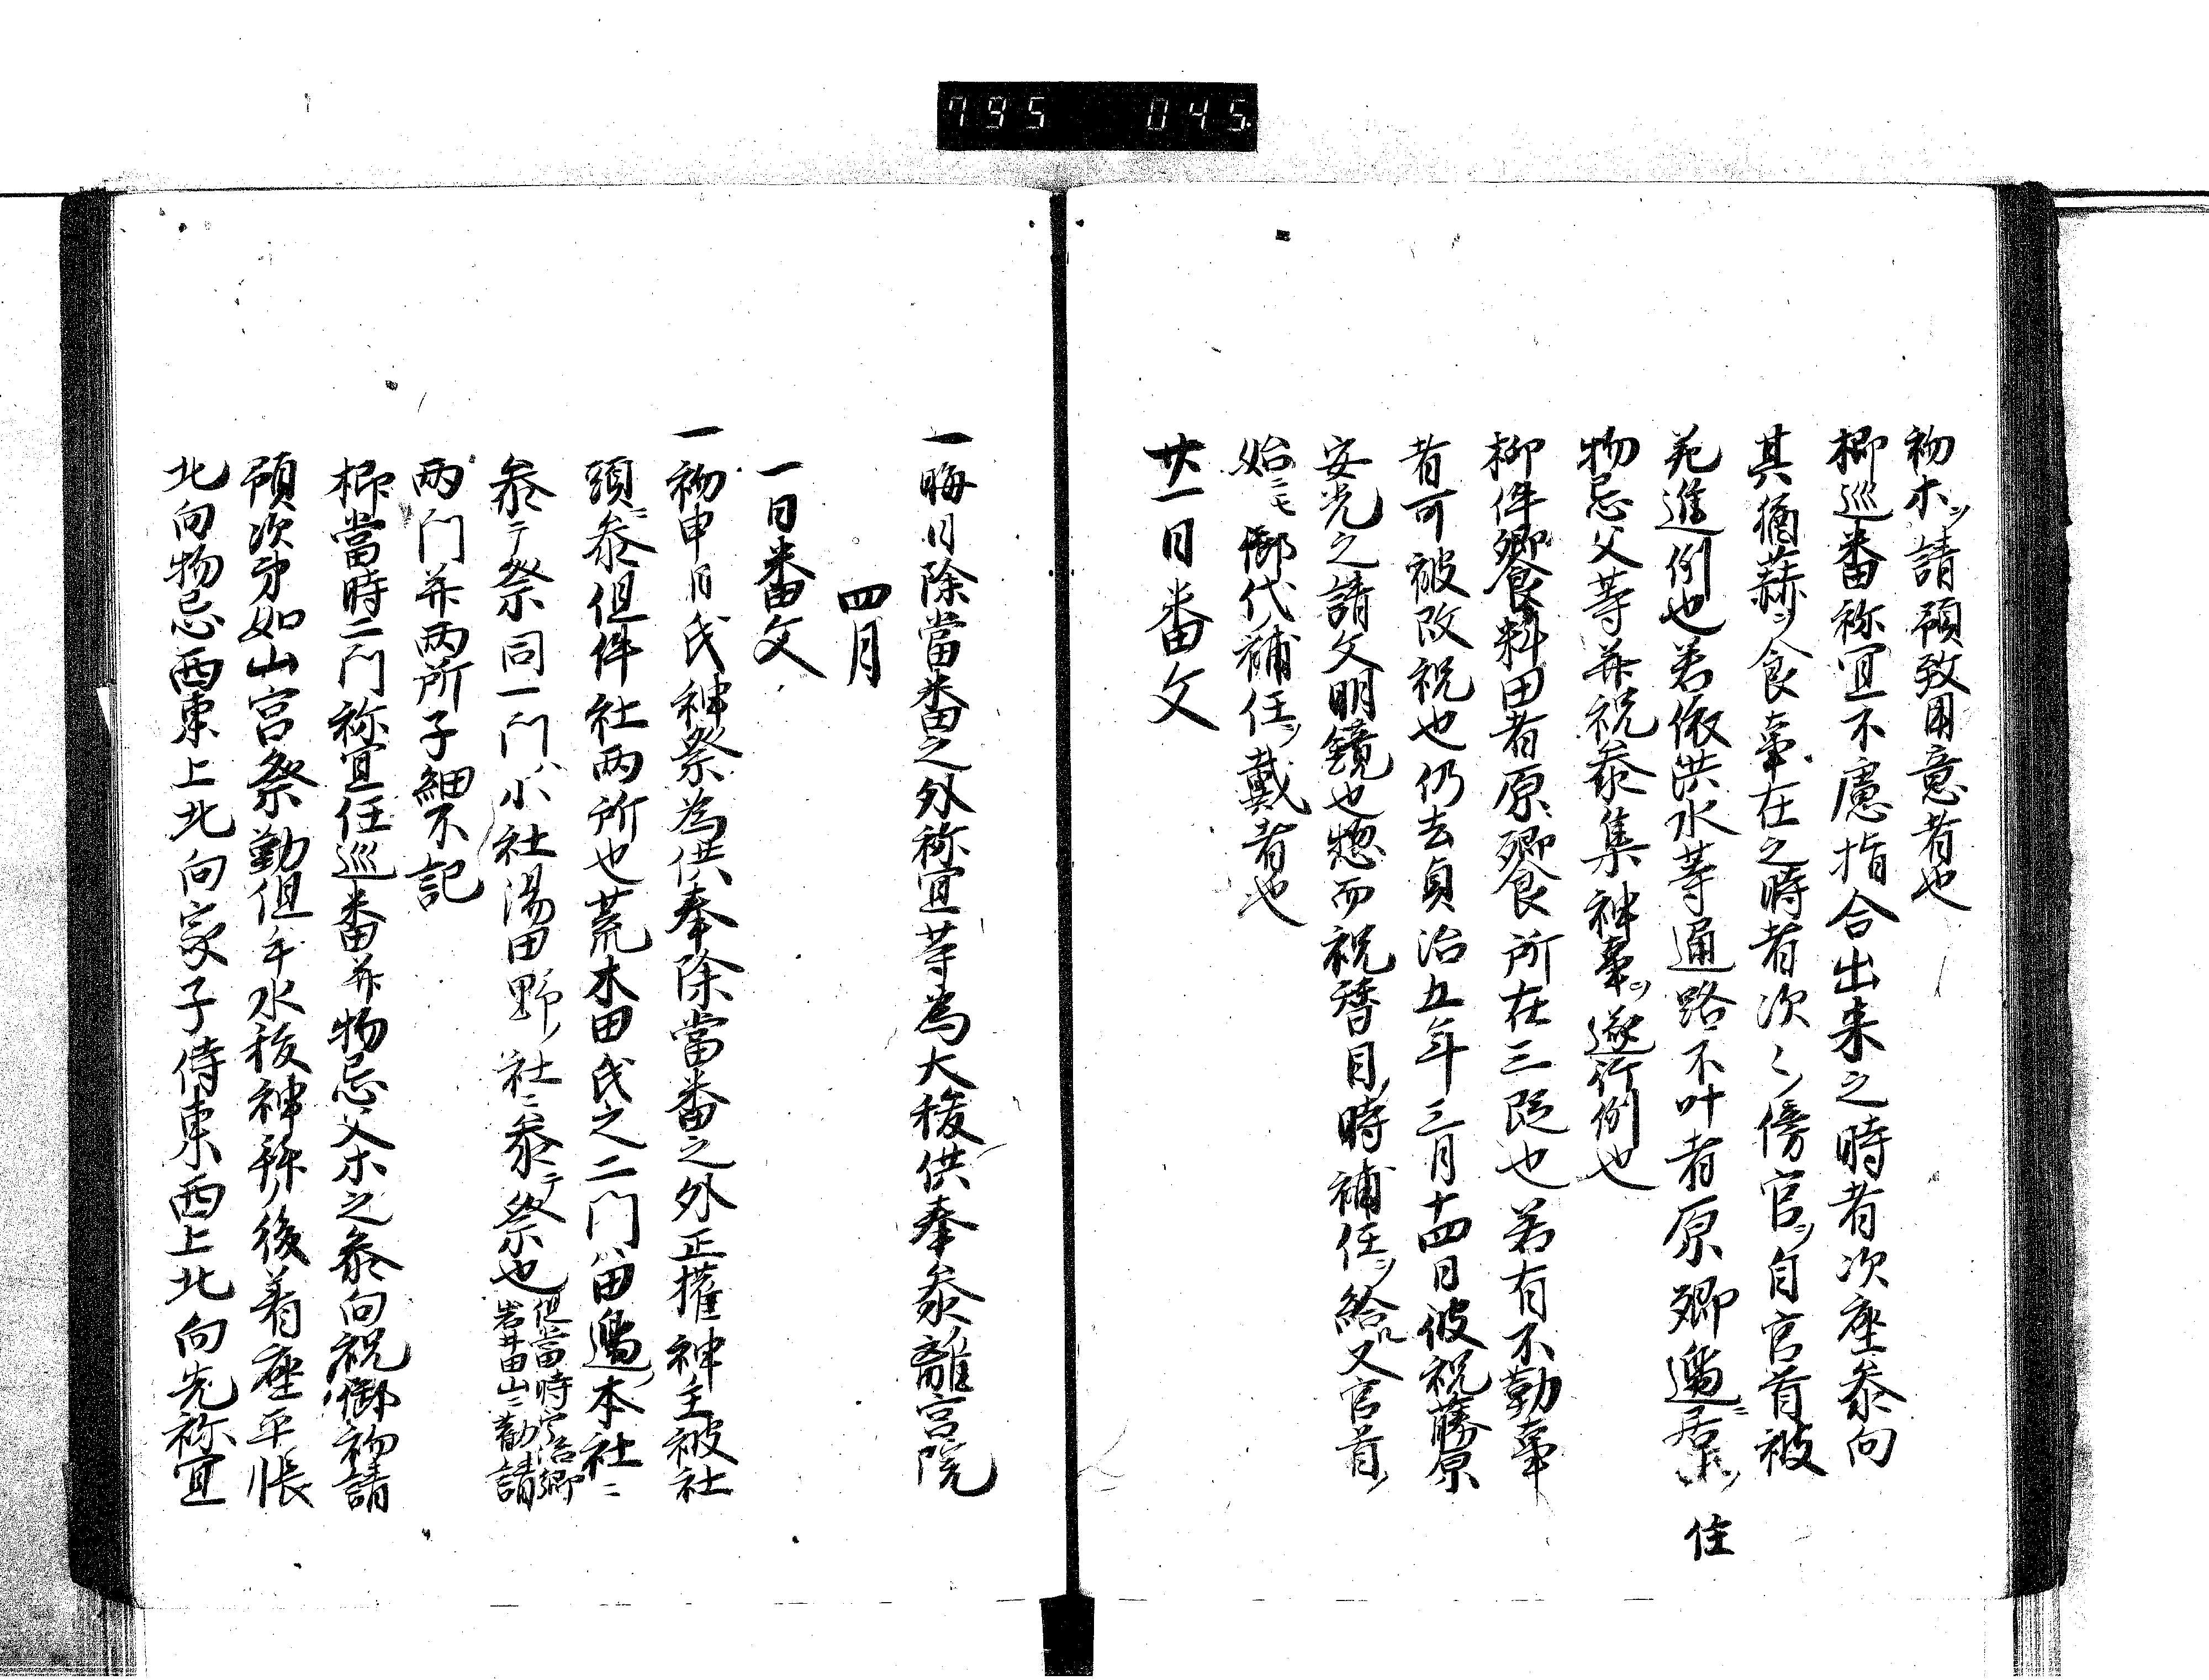 795 045
初木ヲ請預致用意者也
抑巡番祢宜不慮指合出来之時者次座参向
其猶蒜ヲ食事在之時者次々ノ傍官ヲ自官首被
差進例也若依洪水等通路不叶者原郷邊ニ居
住
物忌父等并祝参集神事ヲ遂行例也
抑件饗料田者原郷食所在三段也若有不勤事
者可被改祝也仍去貞治五年三月十四日彼祝藤原
安光之請文明鏡也惣而祝替目ノ時補任ヲ給ハ又官首ノ
始ニモ御代補任ヲ戴者也
廿一日番文
一晦日除當番之外祢宜等為大祓供奉参離宮院
四月
一日番文
一初申日氏神祭為供奉除當番之外正權神主被社
頭ニ参但件社両所也荒木田氏之二門ハ田邊ノ本社ニ
参テ祭同一門ハ小社湯田野ノ社ニ参テ祭也
但當時宇治郷
岩井田山ニ勧請
両門并両所子細不記
抑當時二門祢宜任巡番并物忌父木之参向祝ノ御初請
預次第如山宮祭勤但手水祓神拜ノ後着座平帳
北向物忌西東上北向家子侍東西上北向先祢宜